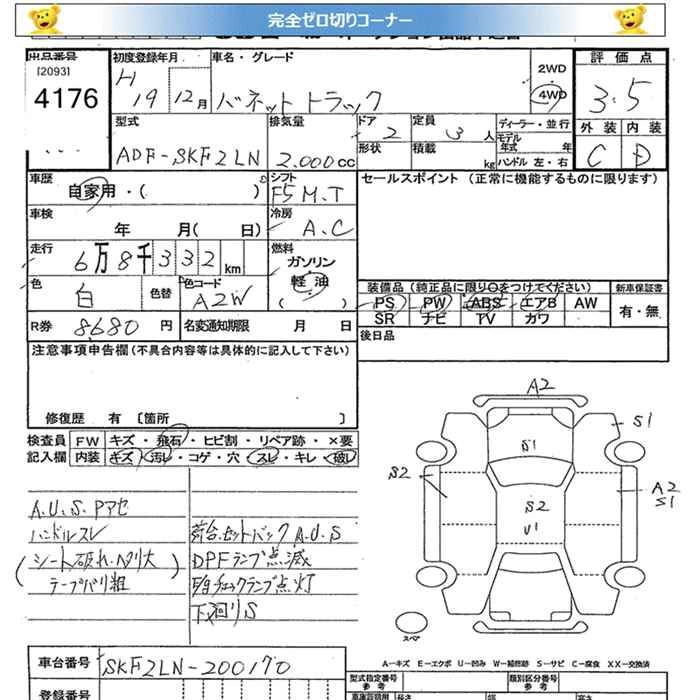 完全ゼロ切りコーナー
出品番号
[2093]
4176
初度登録年月
H 19 12月
車名・グレード
バネット トラック
2WD
4WD
評価点
3.5
外装 内装
C D
型式
ADF-SKF2LN
排気量
2.000cc
ドア
2
定員
3人
ディーラー・並行
モデル年式 年
形状
積載
kg
ハンドル 左・右
車歴
自家用・( )
シフト
F5 M.T
セールスポイント (正常に機能するものに限ります)
車検
年 月( 日)
冷房
A.C
走行
6万8千332km
燃料
ガソリン
軽油
( )
色
白
色替
色コード
A2W
装備品 (純正品に限り○をつけてください)
新車保証書
PS PW ABS エアB AW
有・無
SR ナビ TV カワ
R券 8680円
名変通知期限 月 日
後日品
注意事項申告欄 (不具合内容等は具体的に記入して下さい)
修復歴 有 [箇所 ]
検査員
記入欄
FW キズ・飛石・ヒビ割・リペア跡・×要
内装 キズ・汚レ・コゲ・穴・スレ・キレ・破レ
A.U.S.Pアセ
ハンドルスレ
(シート破れ.ヘタリ大
テープバリ粗)
荷台.セットバック A.U.S
DPFランプ点滅
チェックランプ点灯
下廻りS
A2
S1
S1
S2
S2
U1
A2
S1
スペア
車台番号 SKF2LN-200170
登録番号
A―キズ E―エクボ U―凹み W―補修跡 S―サビ C―腐食 XX―交換済
型式指定番号
参考
類別区分番号
参考
長さ
幅
高さ